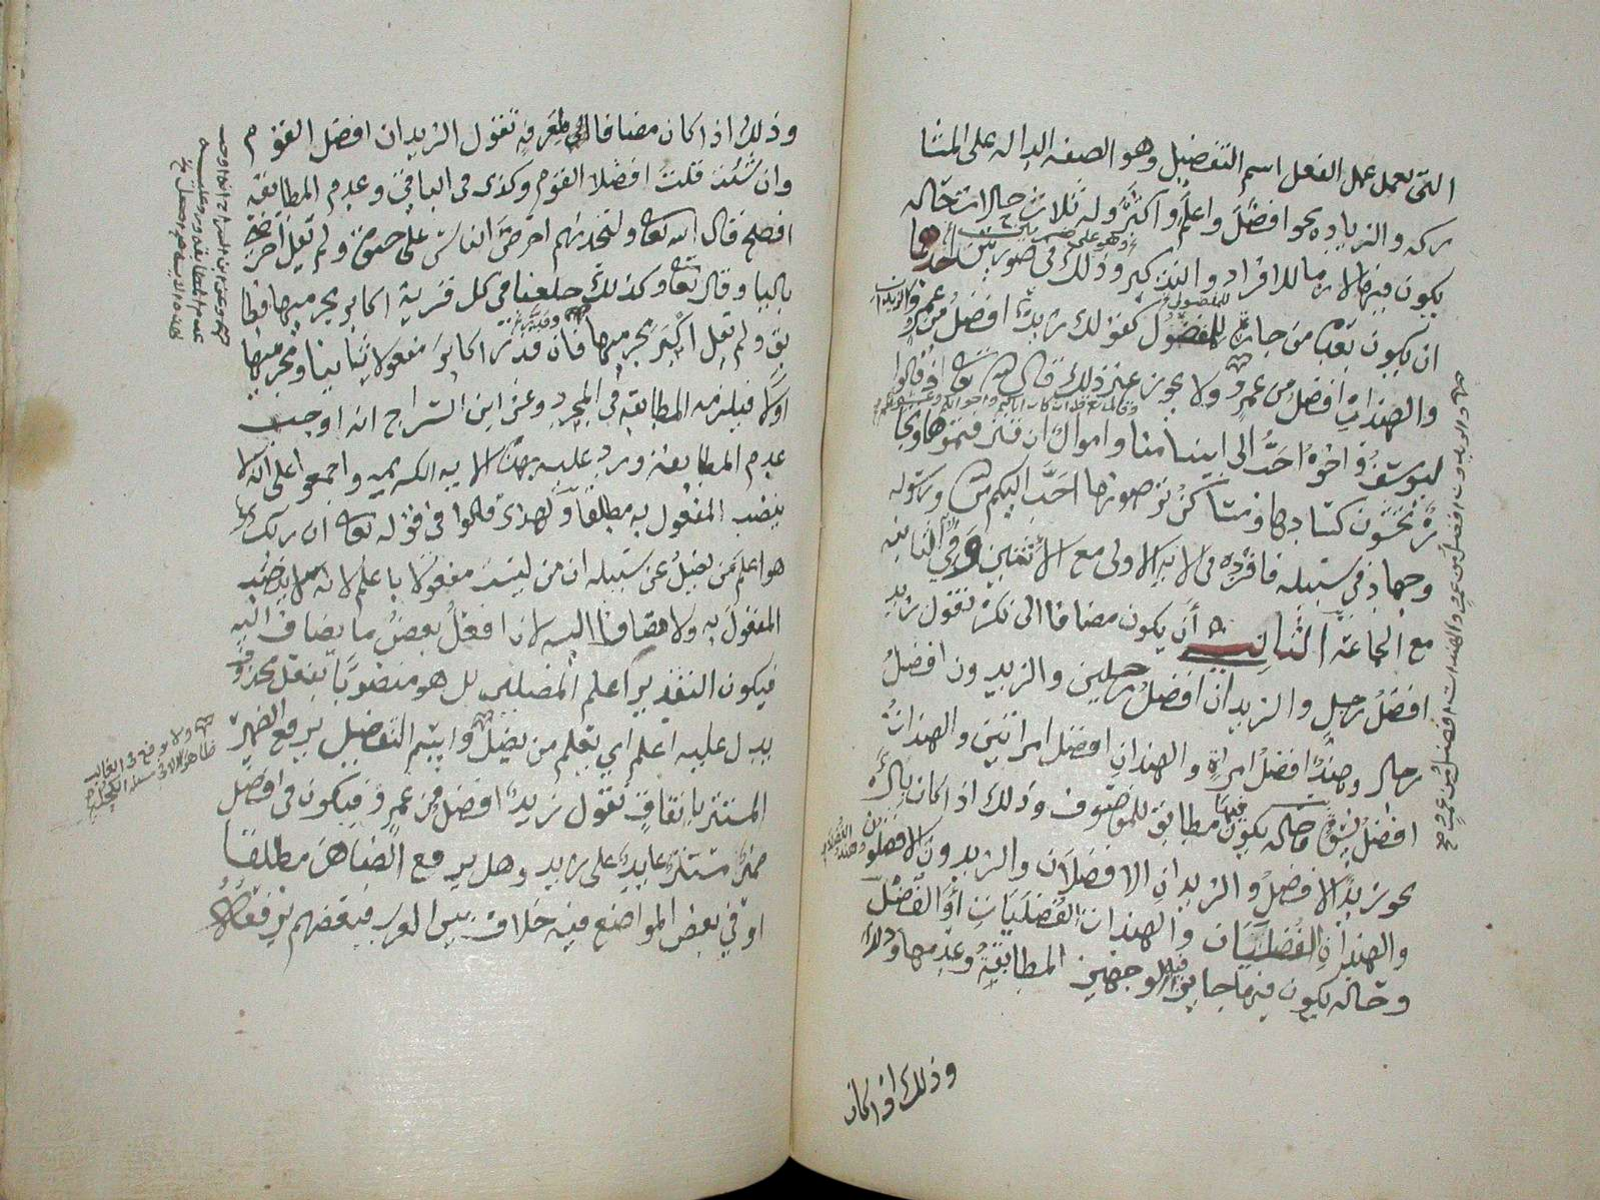 التي تعمل عمل الفعل اسم التفضيل وهو الصفه الداله على المشا
ركه والزياده نحو افضل واعلم واكثر وله ثلاث حالات حاله
يكون فيها لازما للافراد والتذكير وذلك في صورتين احدها
ان يكون بعده من جارة للمفضول كقولك زيد افضل من عمرو والزيدان
والهندات افضل من عمرو ولا يجوز غير ذلك قال الله تعالى اذ قالوا
ليوسف واخوه احب الى ابينا منا واموال اقترفتموها وتجا
رة تخشون كسادها ومساكن ترضونها احب اليكم من الله ورسوله
وجهاد في سبيله فافرد في الايه الاولى مع الاثنين وفي الثانيه
مع الجماعة الثانيه ان يكون مضافا الى نكرة تقول زيد
افضل رجل والزيدان افضل رجلين والزيدون افضل
رجال وهند افضل امراة والهندان افضل امراتين والهندات
افضل نسوة وحاله يكون فيها مطابق للموصوف وذلك اذا كان بال
نحو زيد الافضل والزيدان الافضلان والزيدون الافضلون
والهندان الفضليان والهندات الفضليات او الفضل
وحاله يكون فيها جايز الوجهين المطابقة وعدمها وذلك
وذلك اذا كان
وذلك اذا كان مضافا الى معرفه تقول الزيدان افضل القوم
وان شئت قلت افضلا القوم وكذى في الباقي وعدم المطابقة
افصح قال الله تعالى ولتجدنهم احرص الناس على حيوة ولم يقل احرصي
باليا وقال تعالى وكذلك جعلنا في كل قرية اكابر مجرميها فطا
بق ولم يقل اكبر مجرميها فان قدر اكابر مفعولا ثانيا ومجرميها
اولا فيلزمه المطابقه في المجرد وعن ابن السراج انه اوجب
عدم المطابقة ورد عليه بهذه الايه الكريمه واجمعوا على انه لا
ينصب المفعول به مطلقا ولهذى قالوا في قوله تعالى ان ربك
هو اعلم من يضل عن سبيله ان من ليست مفعولا باعلم لانه لا ينصب
المفعول به ولا مضافا اليه لان افعل بعض ما يضاف اليه
فيكون التقدير اعلم المضلين بل هو منصوبا بفعل محذوف
يدل عليه اعلم اي يعلم من يضل واسم التفضيل يرفع الضمير
المستتر باتفاق تقول زيد افضل من عمرو فيكون في افضل
ضمير مستتر عايد على زيد وهل يرفع الظاهر مطلقا
او في بعض المواضع فيه خلاف بين العرب فبعضهم يرفعه
ولا يرفع في الغالب
ظاهرا الا في مسئلة الكحل